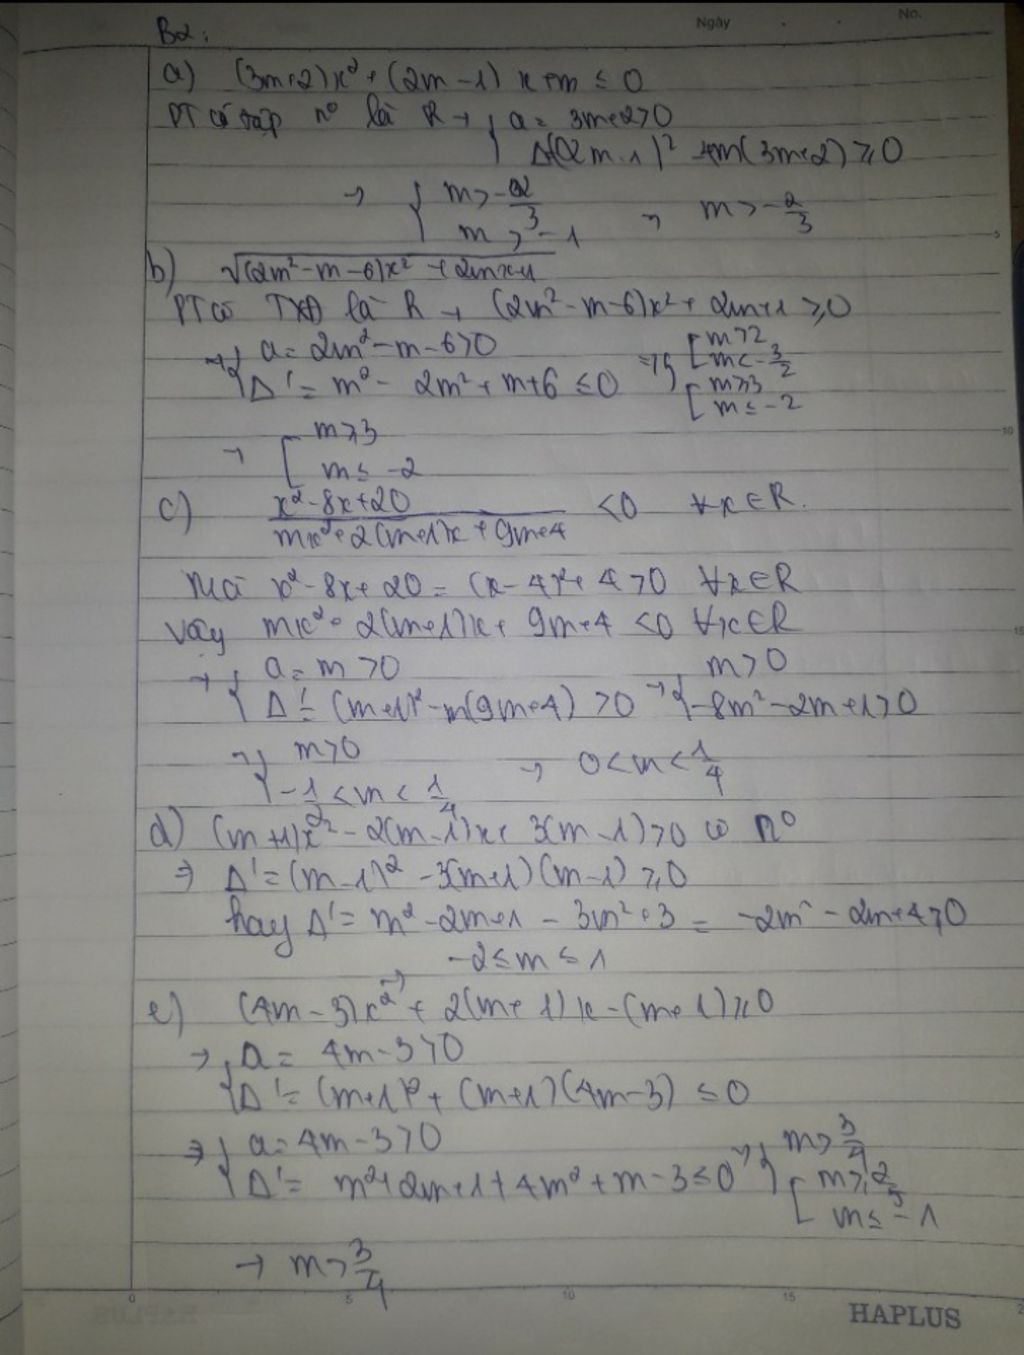 Ngày No.
B2:
a) (3m+2)x² + (2m-1)x+m ≤ 0
PT có tập n° là R → { a = 3m+2>0
Δ=(2m-1)² -4m(3m+2) ≥ 0
→ { m>-2/3
m > -1 → m>-2/3
b) √(2m²-m-6)x² + 2mx+1
PT có TXĐ là R → (2m²-m-6)x² + 2m+1 ≥ 0
→ { a = 2m²-m-6>0
Δ' = m² - 2m² + m+6 ≤ 0 ⇒ { [ m>2
m<-3/2
[ m≥3
m ≤ -2
→ [ m≥3
m ≤ -2
c) x²-8x+20 / mx²+2(m+1)x + 9m+4 <0 ∀x∈R.
Mà x²-8x+20 = (x-4)²+4>0 ∀x∈R
Vậy mx²+2(m+1)x+9m+4 <0 ∀x∈R
→ { a = m >0
Δ' = (m+1)²-m(9m+4) >0 → { m>0
-8m²-2m+1>0
→ { m>0
-1/2 <m< 1/4 → 0<m<1/4
d) (m+1)x² - 2(m-1)x+ 3(m-1)>0 có n°
⇒ Δ'=(m-1)² -3(m+1)(m-1) ≥ 0
hay Δ' = m²-2m+1 - 3m²+3 = -2m² - 2m+4≥0
→ -2≤m≤1
e) (4m-3)x² + 2(m+1)x-(m+1)≥0
→ { a = 4m-3>0
Δ' = (m+1)²+(m+1)(4m-3) ≤0
⇒ { a = 4m-3>0
Δ' = m²+2m+1+4m²+m-3≤0 → { m>3/4
[ m≥2/5
m≤-1
→ m>3/4
0 5 10 15
HAPLUS